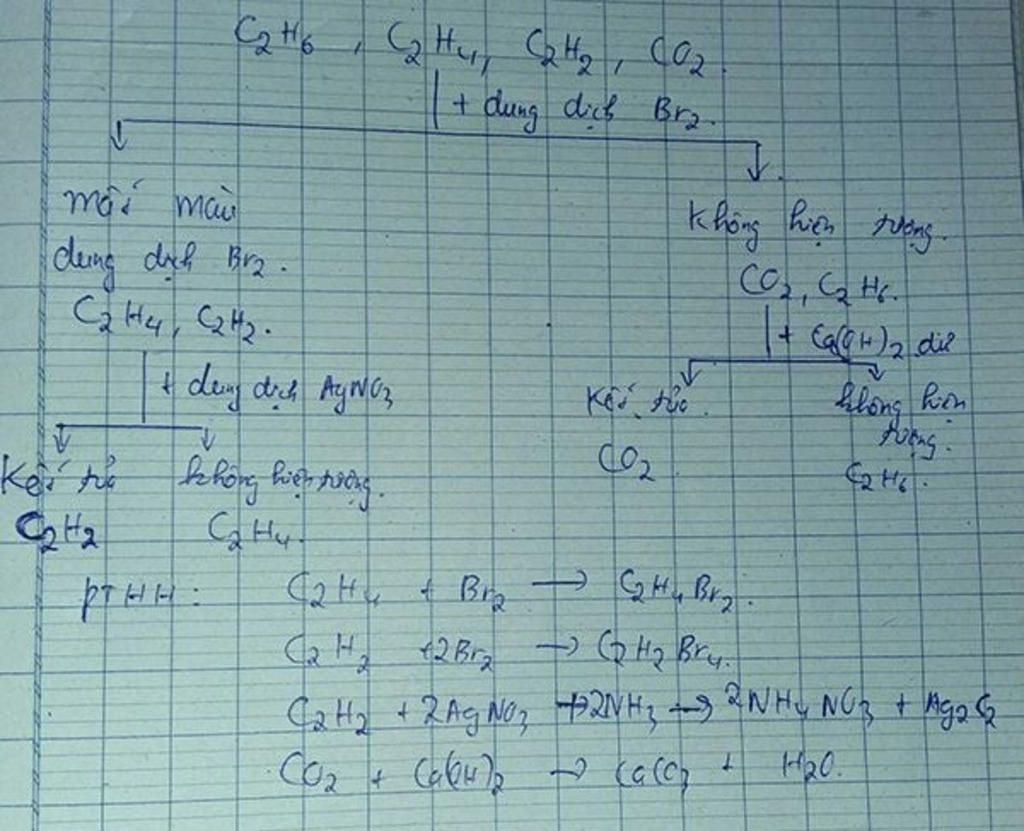 C₂H₆ , C₂H₄, C₂H₂, CO₂.
+ dung dịch Br₂.
mất màu
dung dịch Br₂.
C₂H₄, C₂H₂.
+ dung dịch AgNO₃
Kết tủa
không hiện tượng.
C₂H₂
C₂H₄.
Không hiện tượng.
CO₂, C₂H₆.
+ Ca(OH)₂ dư
Kết tủa.
không hiện
tượng.
CO₂
C₂H₆.
PTHH: C₂H₄ + Br₂ → C₂H₄Br₂.
C₂H₂ +2Br₂ → C₂H₂Br₄.
C₂H₂ + 2AgNO₃ +2NH₃ → 2NH₄NO₃ + Ag₂C₂
CO₂ + Ca(OH)₂ → CaCO₃ + H₂O.